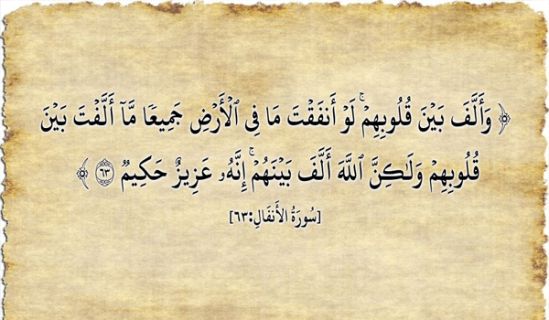 ﴿ وَأَلَّفَ بَيْنَ قُلُوبِهِمْ ۚ لَوْ أَنفَقْتَ مَا فِى ٱلْأَرْضِ جَمِيعًا مَّآ أَلَّفْتَ بَيْنَ
قُلُوبِهِمْ وَلَـٰكِنَّ ٱللَّهَ أَلَّفَ بَيْنَهُمْ ۚ إِنَّهُۥ عَزِيزٌ حَكِيمٌ ٦٣ ﴾
[سُورَةُ الأَنفَالِ:٦٣]